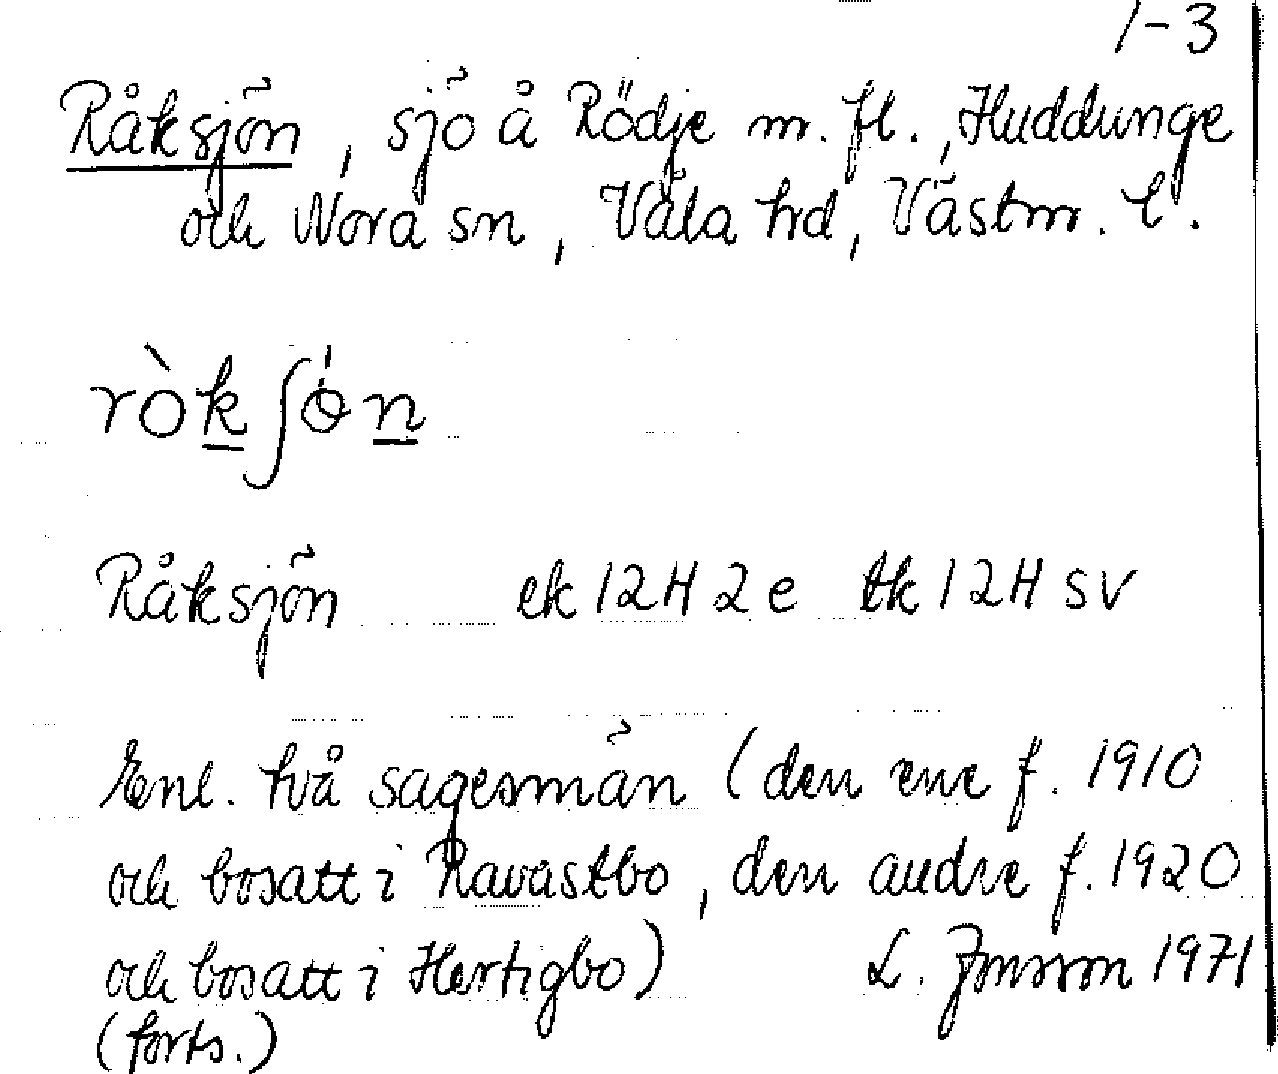 1-3
Råksjön, sjö å Rödje m. fl., Huddunge
och Nora sn, Våla hd, Västm. l.
ròk̲ʃɵ́n̲
Råksjön ek 12H 2e tk 12H SV
Enl. två sagesmän (den ene f. 1910
och bosatt i Ravastbo, den andre f. 1920
och bosatt i Hertigbo) L. Jonsson 1971
(forts.)